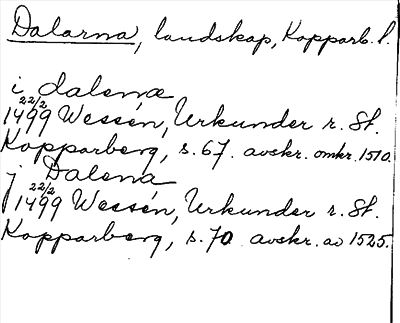 Dalarna, landskap, Kopparb. l.
i dalenæ
1499 22/2 Wessén, Urkunder r. St.
Kopparberg, s. 67. avskr. omkr. 1510.
j Dalena
1499 22/2 Wessén, Urkunder r. St.
Kopparberg, s. 70 avskr. av 1525.